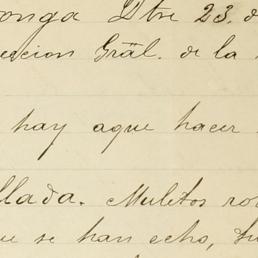 onga Dbre 23. d
ección Gräl. de la
hay aque hacer
llada. Mulitos ro
ue se han echo, su